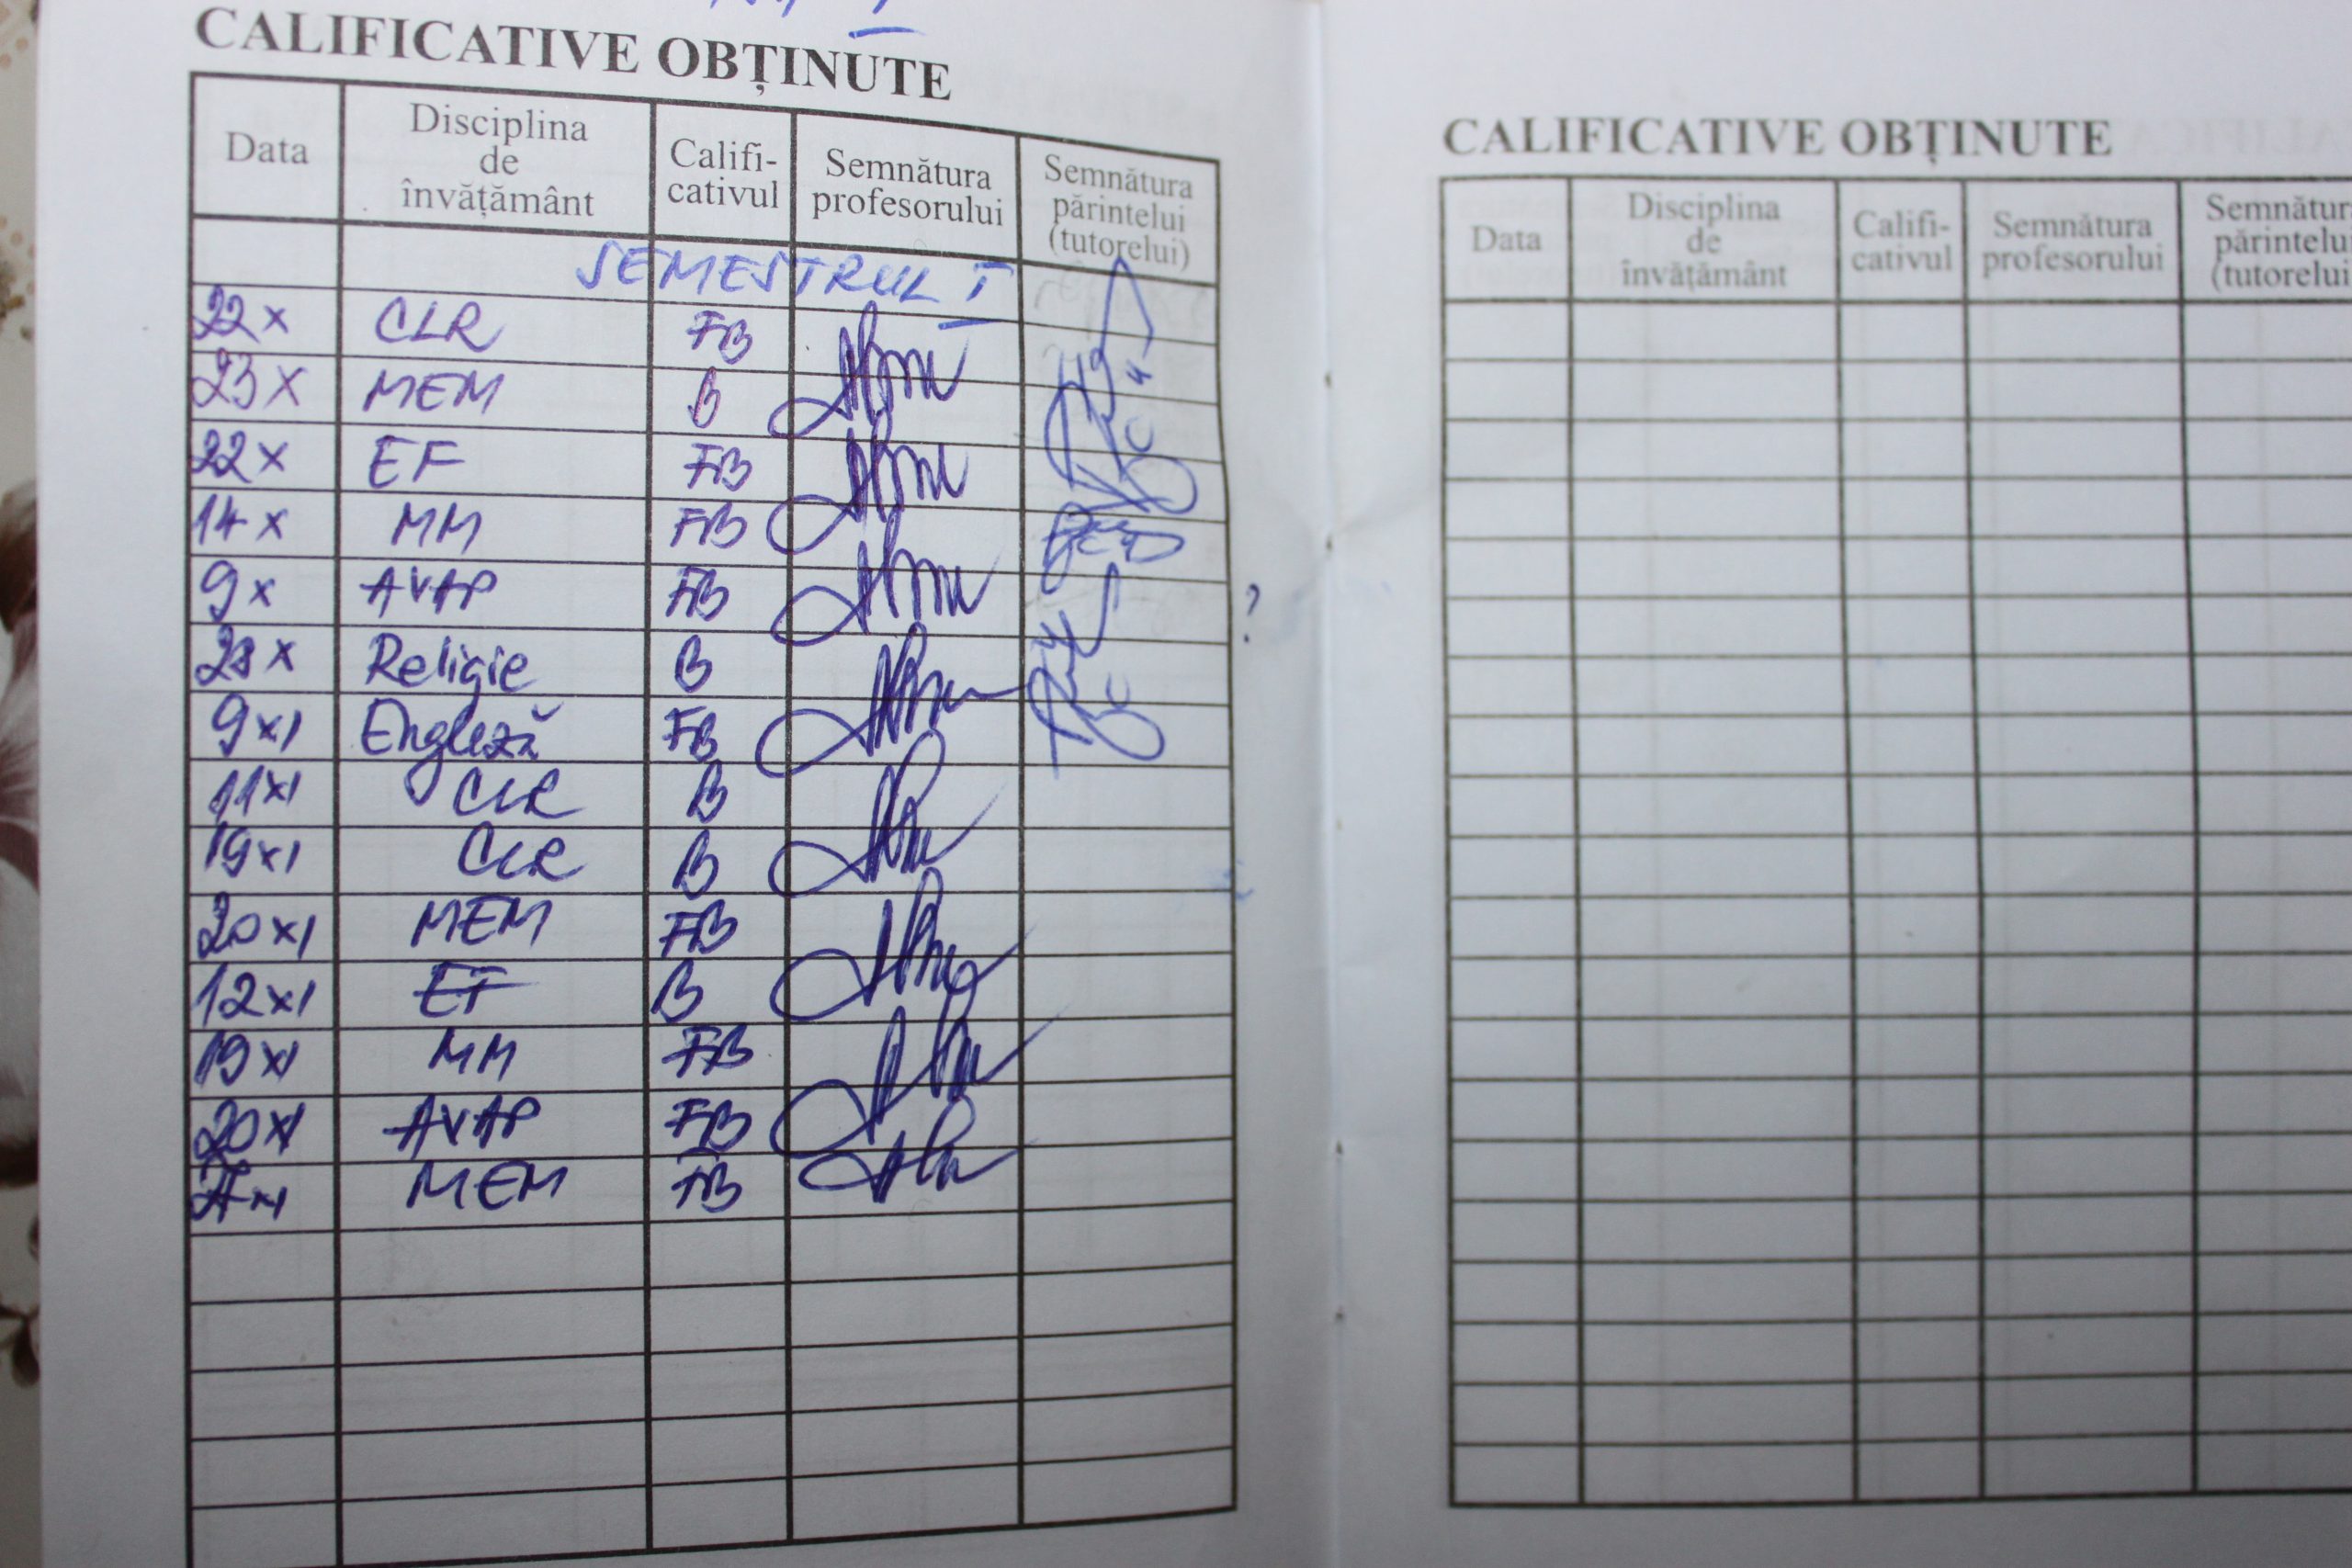 CALIFICATIVE OBȚINUTE
Data Disciplina de învățământ Califi-cativul Semnătura profesorului Semnătura părintelui (tutorelui)
SEMESTRUL I
22 X CLR FB
23 X MEM B
22 X EF FB
14 X MM FB
9 X AVAP FB
28 X Religie B
9 XI Engleză FB
11 XI CLR B
19 XI CLR B
20 XI MEM FB
12 XI EF B
19 XI MM FB
20 XI AVAP FB
XI MEM FB
?
CALIFICATIVE OBȚINUTE
Data Disciplina de învățământ Califi-cativul Semnătura profesorului Semnătur părintelui (tutorelui